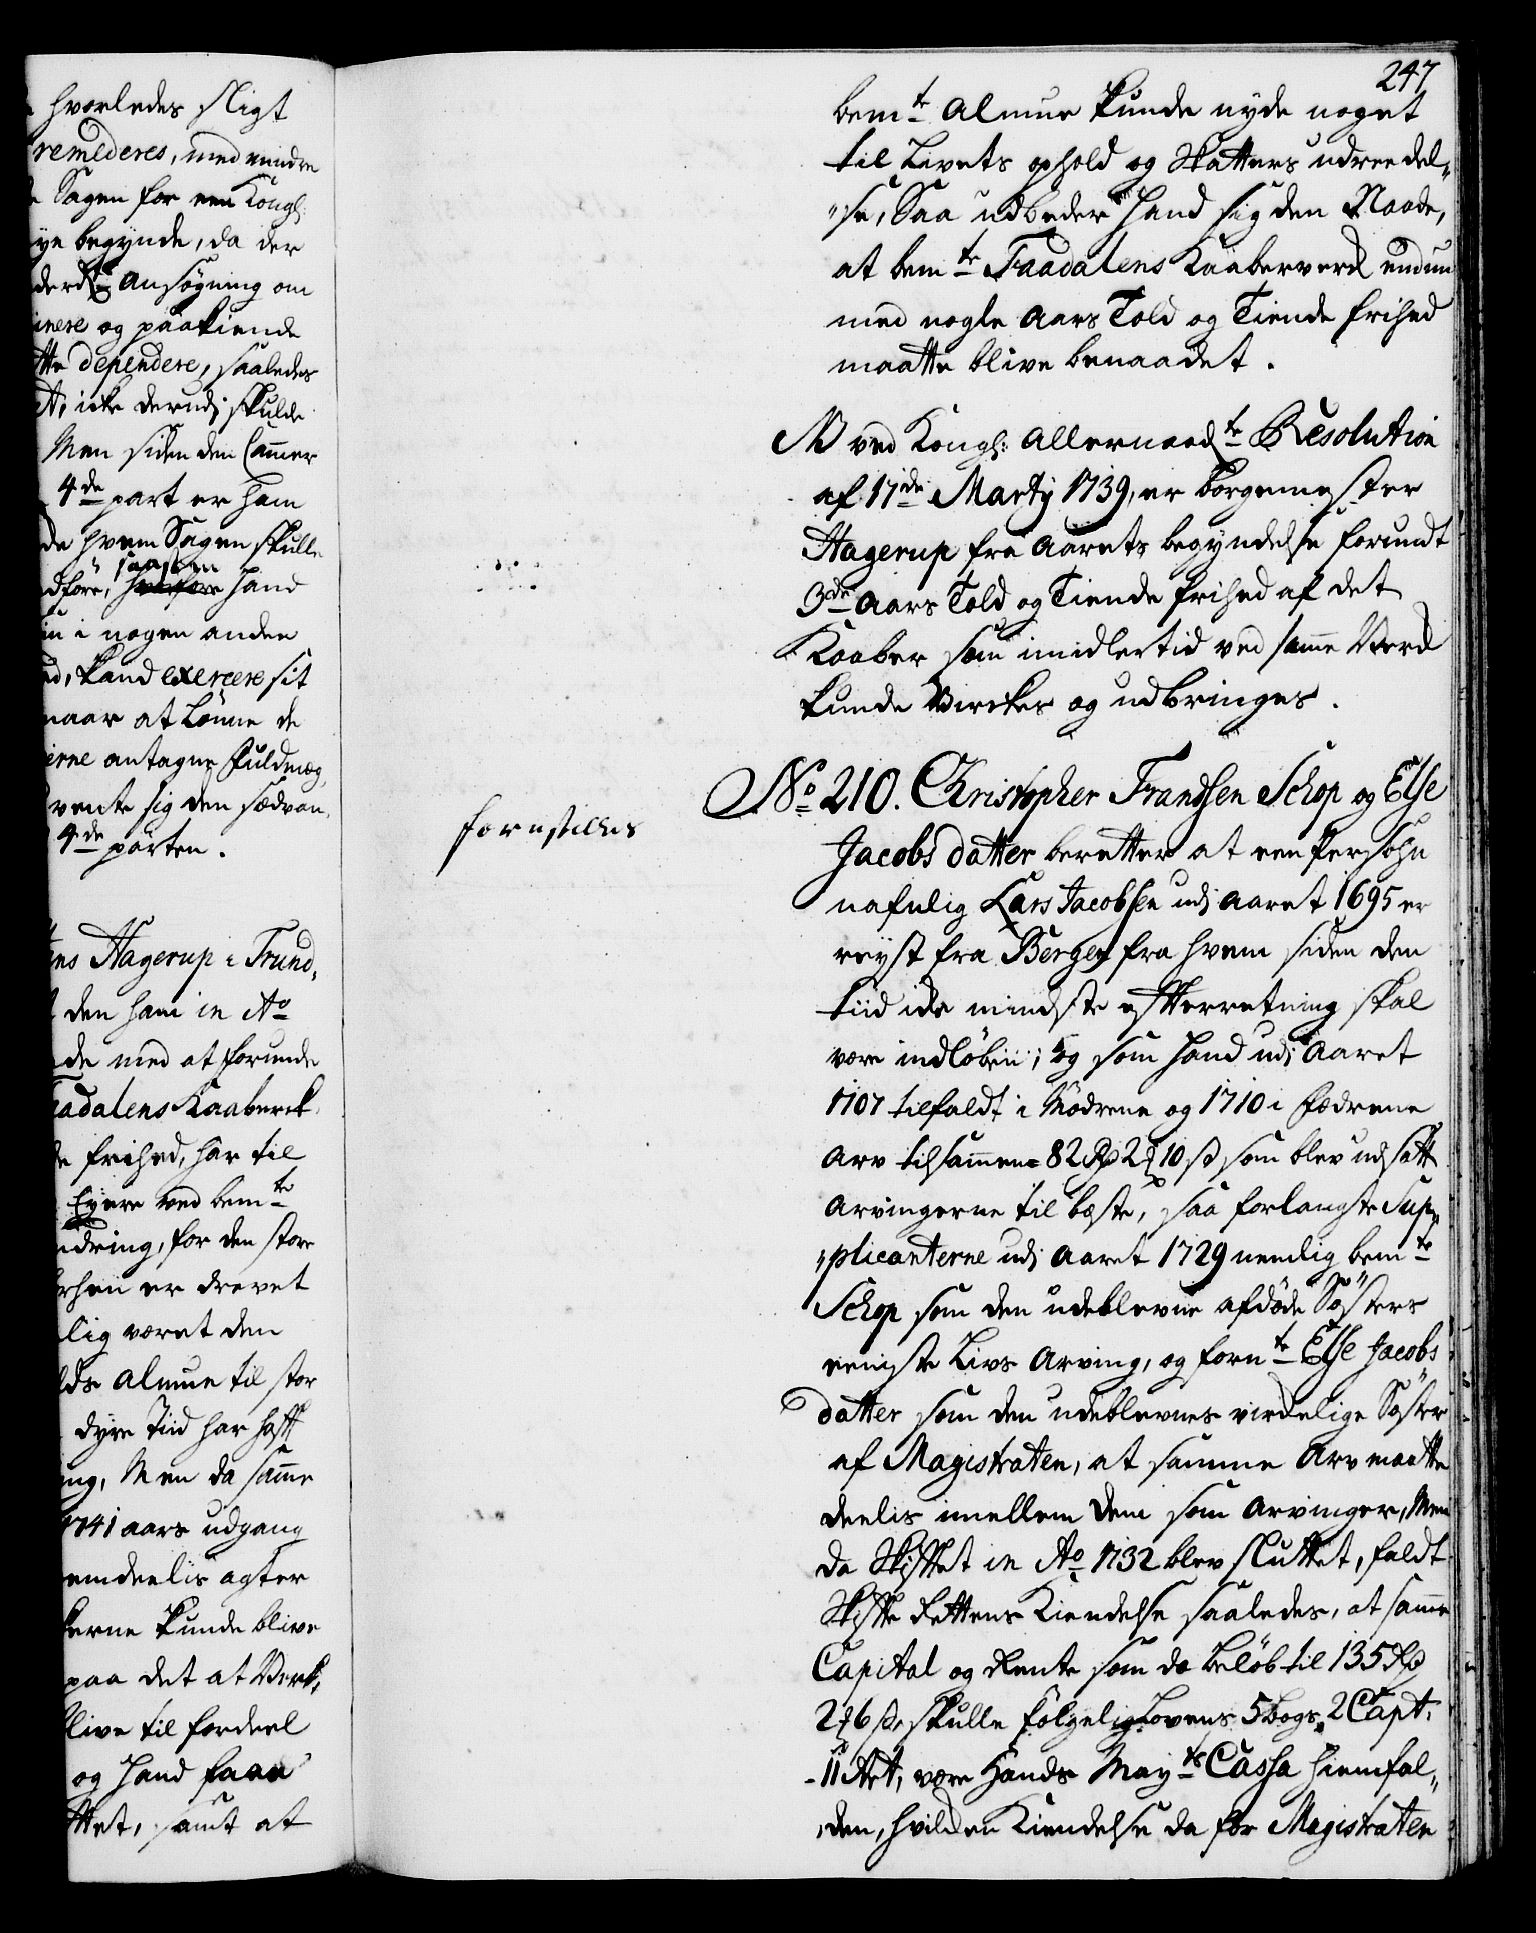 hvorledes sligt
remederes, med mindre
Sagen for een Kongl:
ye begynde, da der
ansøgning om
inere og paakiende
tte dependere, saaledes
icke derudj skulde
Men siden den Cammer
4de part er ham
de hvem Sagen skulle
saasom
dføre, hvorfore hand
i nogen anden
kand exercere sit
naar at lønne de
erne antagne Fuldmæg,
vente sig den sædvan,
4de parten.
ns Hagerup i Trund,
den ham in Ao
de med at forunde
aadalens Kaaberck
frihed, har til
Eyere ved bemte
dring, for den store
er drevet
lig været den
lds Almue til stor
dyre Tiid har hafft
ng, Men da samme
1741 aars udgang
emdeelis agter
kunde blive
paa det at Werk,
live til fordeel
og hand faae
ttet, samt at
247
bemte Almue kunde nyde noget
til Livets ophold og Skatters udreedel„
„se, Saa udbeder Hand sig den Naade,
at bemte Faadalens Kaaberverck endnu
med nogle Aars Told og Tiende frihed
maatte blive benaadet.
NB ved Kongl: Allernaadte Resolution
af 17de Martij 1739, er borgemester
Hagerup fra Aarets begyndelse forundt
3de Aars Told og Tiende frihed af det
Kaaber som imidlertid ved samme Werck
kunde Virckes og udbringes.
forestilles
No 210. Christopher Frandsen Schop og Else
Jacobs datter beretter at een Persohn
nafnlig Lars Jacobsen udj Aaret 1695 er
reyst fra Bergen fra hvem siden den
tiid icke mindste efterretning skal
være indløben; og som hand udj Aaret
1707 tilfaldt i Mødrene og 1710 i Fædrene
Arv tilsammen 82 Rd 2 10 s som blev udsatt
Arvingerne til beste, saa forlangte Sup„
„plicanterne udj Aaret 1729 nemlig bemte
Schop som den udeblevne afdøde Søsters
eeniste Livs Arving, og fornte Else Jacobs
datter som den udeblevnes virckelige Søster
af Magistraten, at samme Arv maatte
deelis imellem dem som Arvinger, Men
da Skiftet in Ao 1732 blev sluttet, faldt
Skifte Rettens Kiendelse saaledes, at samme
Capital og Rente som da beløb til 135 Rd
2 6 s, skulle følgelig Lovens 5 bogs 2 Capt.
11 Art, være Hands Mayts Cassa hiemfal„
„den, hvilcken Kiendelse da for Magistraten